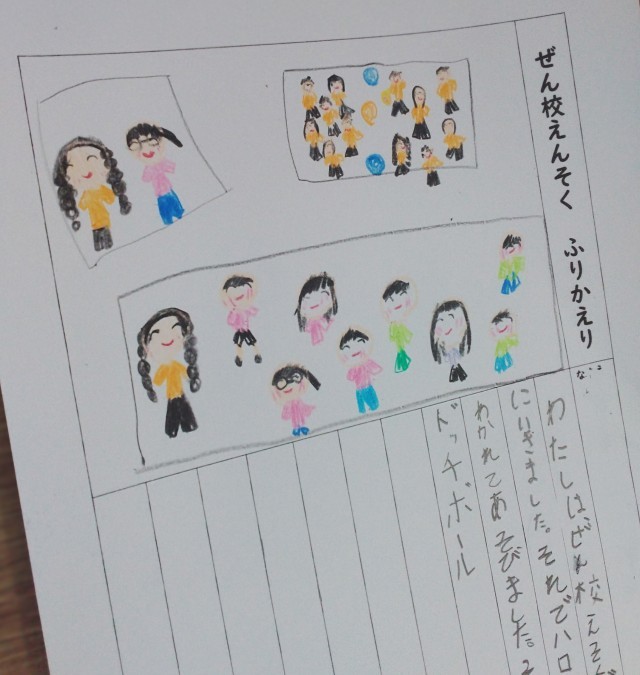 ぜん校えんそく ふりかえり
な
わたしはぜん校えそ
にいきました。それでハロ
わかれてあそびました。そ
ドッチボール